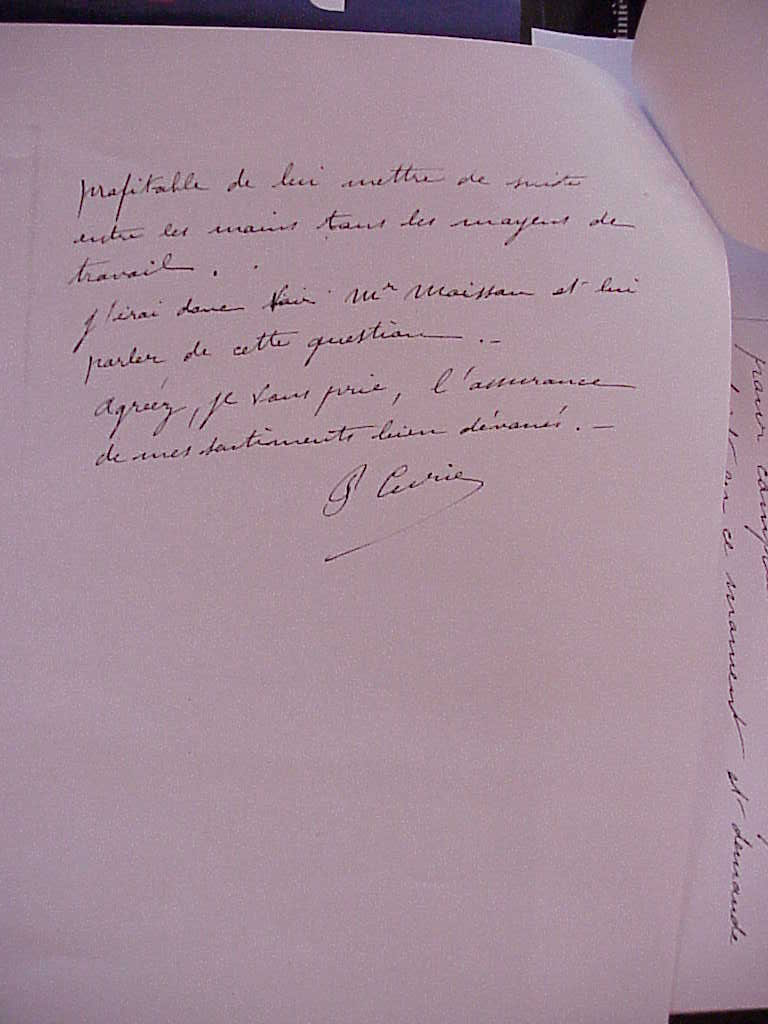 profitable de lui mettre de suite
entre les mains tous les moyens de
travail.
J'irai donc voir Mr Moissan et lui
parler de cette question. –
Agréez, je vous prie, l'assurance
de mes sentiments bien dévoués. –
P Curie
iniè
pour
ce moment et demande